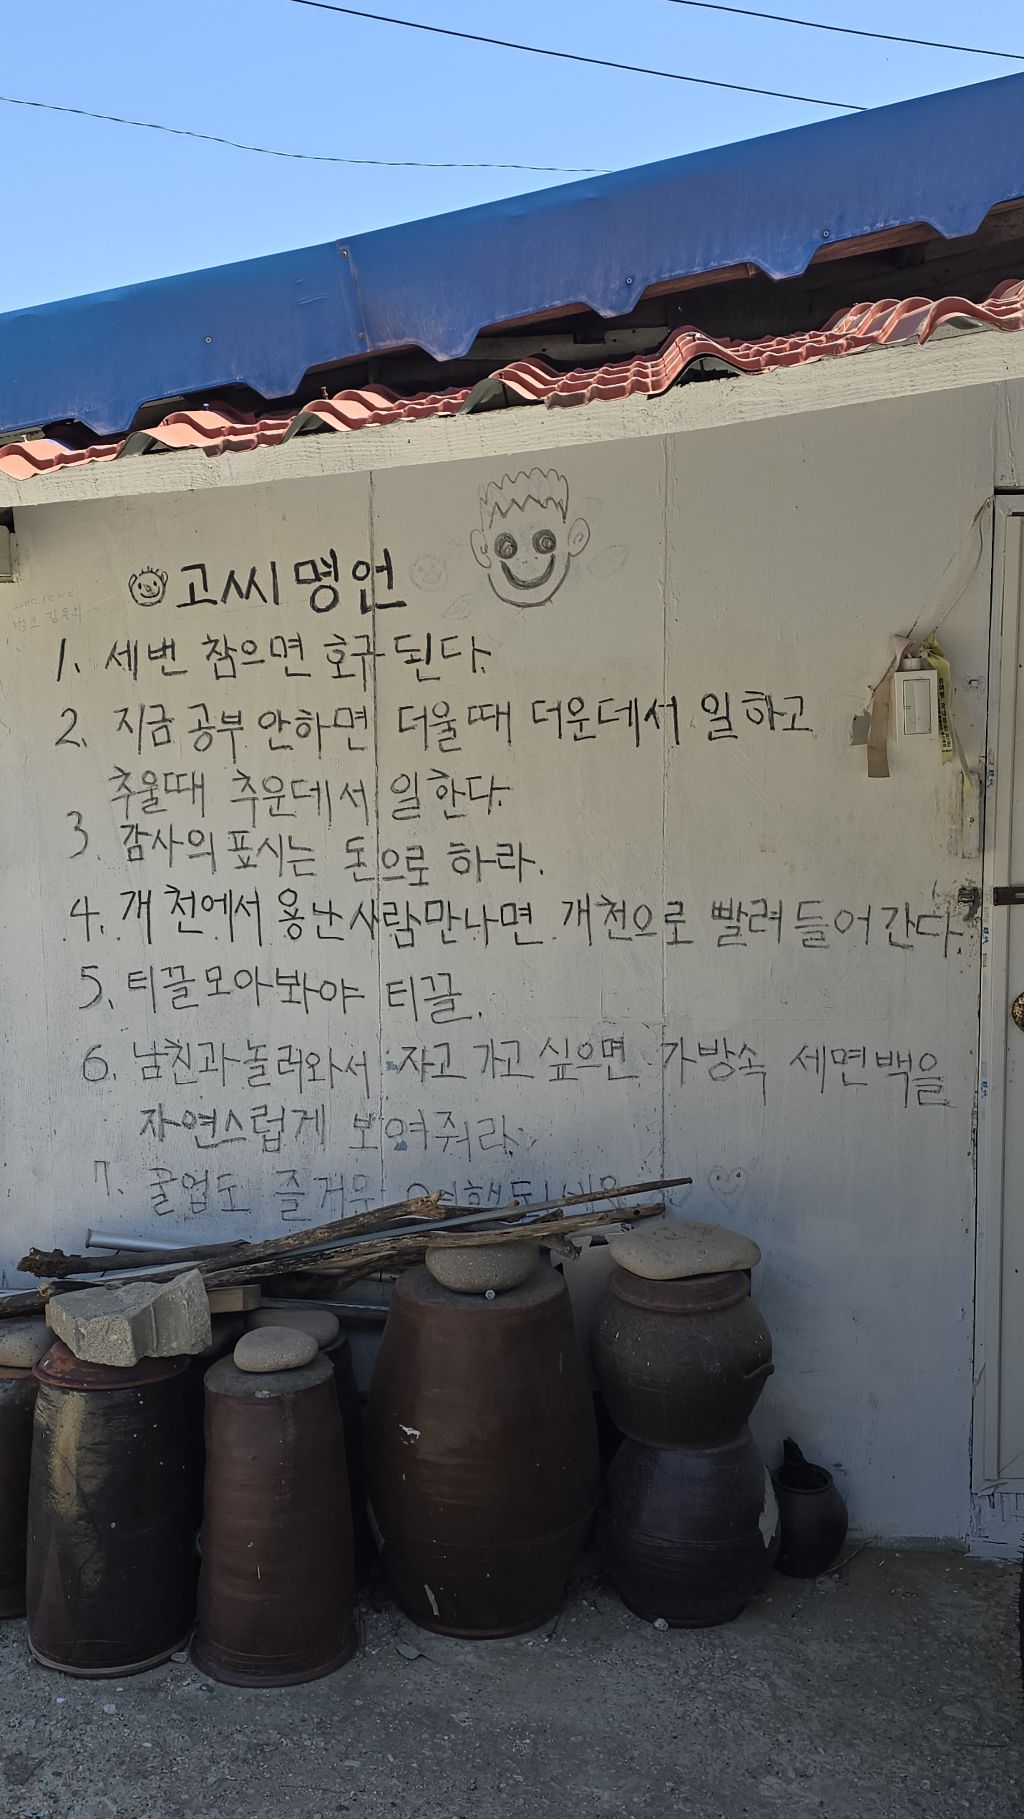 고씨명언
1. 세번 참으면 호구된다.
2. 지금 공부 안하면 더울때 더운데서 일하고
추울때 추운데서 일한다.
3. 감사의 표시는 돈으로 하라.
4. 개천에서 용난사람만나면 개천으로 빨려들어간다.
5. 티끌모아봐야 티끌.
6. 남친과놀러와서 자고 가고 싶으면 가방속 세면백을
자연스럽게 보여줘라.
7. 꿀업도 즐거운